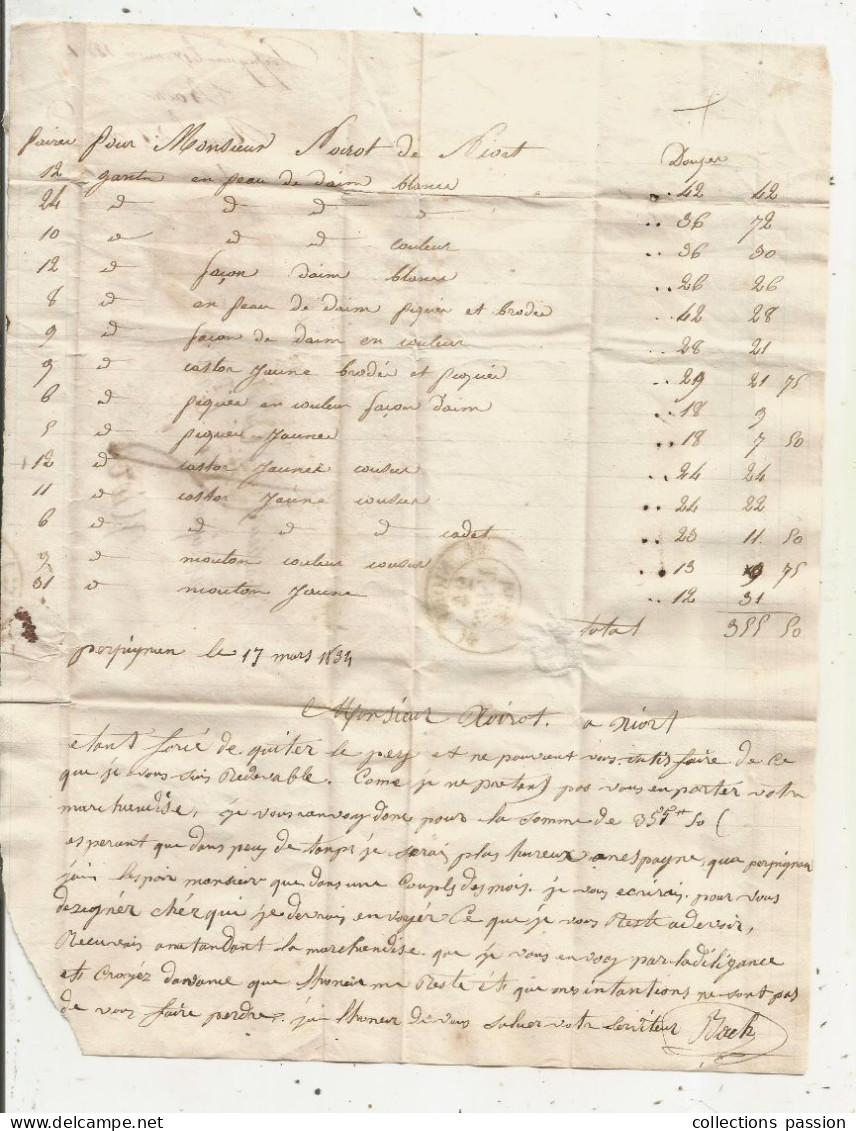 paires pour Monsieur Noirot de Niort Douzes
12 gants en peau de daim blancs .. 42 42
24 d d d d .. 36 72
10 d d d couleur .. 36 30
12 d façon daim blancs .. 26 26
8 d en peau de daim piqués et brodés .. 42 28
9 d façon de daim en couleur .. 28 21
9 d castor jaune brodés et piqués .. 29 21 75
6 d piqués en couleur façon daim .. 18 9
5 d piqués jaunes .. 18 7 50
12 d castor jaunes cousus .. 24 24
11 d castor jaune cousus .. 24 22
6 d d d d cadet .. 23 11 50
9 d mouton couleur cousus .. 13 9 75
31 d mouton jaune .. 12 31
total 355 50
perpignan le 17 mars 1834
Monsieur Noirot. a niort
etant forcé de quiter le pey et ne pouvant vous satisfaire de ce
que je vous suis Redevable. Come je ne pretent pas vous enporter votre
marchendise, je vous ranvoy donc pour la somme de 355# 50 (
esperant que dans peu de temps je serai plus hureux an espagne, qua perpignan
jaie lespoir monsieur que dans une Couple des mois. je vous ecrirais pour vous
dezignér chér qui je devrais envoyér Ce que je vous Reste a devoir,
Recevais anatandant la marchendise que je vous envoy par la diligance
et Croyéz davance que lhoneur me Reste et que mes intantions ne sont pas
de vous faire perdre, jai lhoneur de vous saluer votre serviteur Bach
collections passion